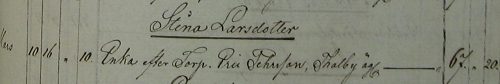 Stina Larsdotter
Mars 10 16 " 10. Enka efter Torp. Eric Jehrson, Thalby äg. 67. " 20